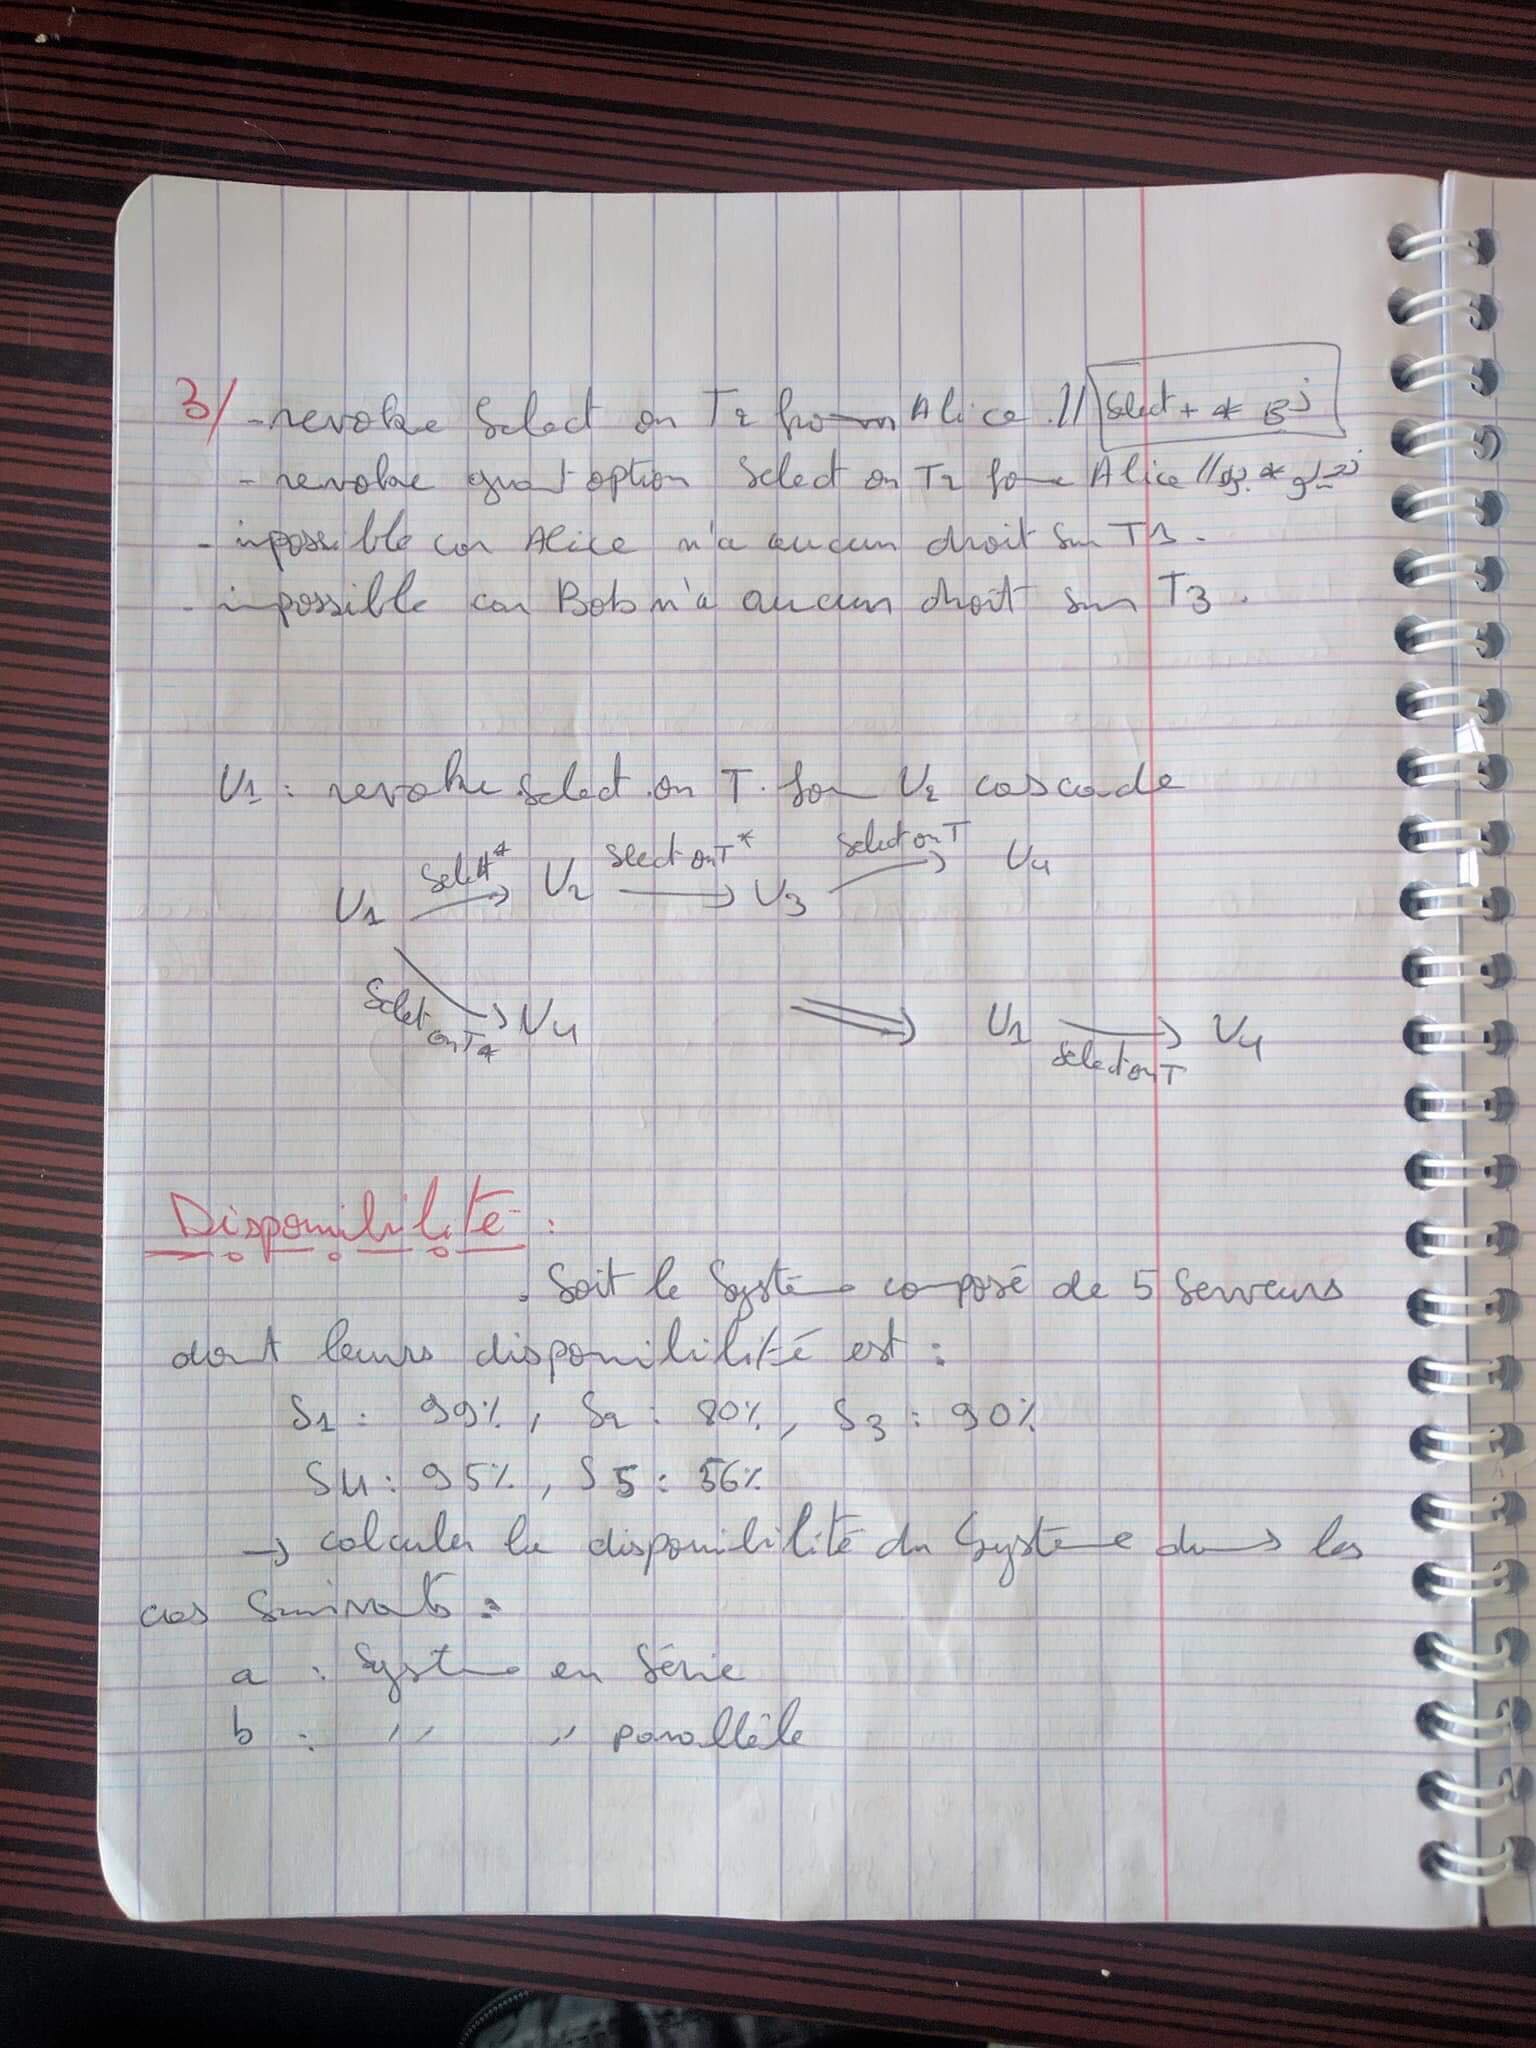 3/ - revoke Select on T2 from Alice. // Select + *
- revoke grant option Select on T2 from Alice // *
- impossible car Alice n'a aucun droit sur T1.
- impossible car Bob n'a aucun droit sur T3.
U1 : revoke select on T from U2 cascade
U1 Select* U2 Select on T* U3 Select on T U4
Select on T* U4 ⇒ U1 select on T U4
Disponibilité :
. Soit le Système composé de 5 Serveurs
dont leurs disponibilité est :
S1 : 99%, S2 : 80%, S3 : 90%
S4 : 95%, S5 : 56%
→ calculer la disponibilité du Système dans les
cas Suivants :
a : Système en Série
b : " " parallèle